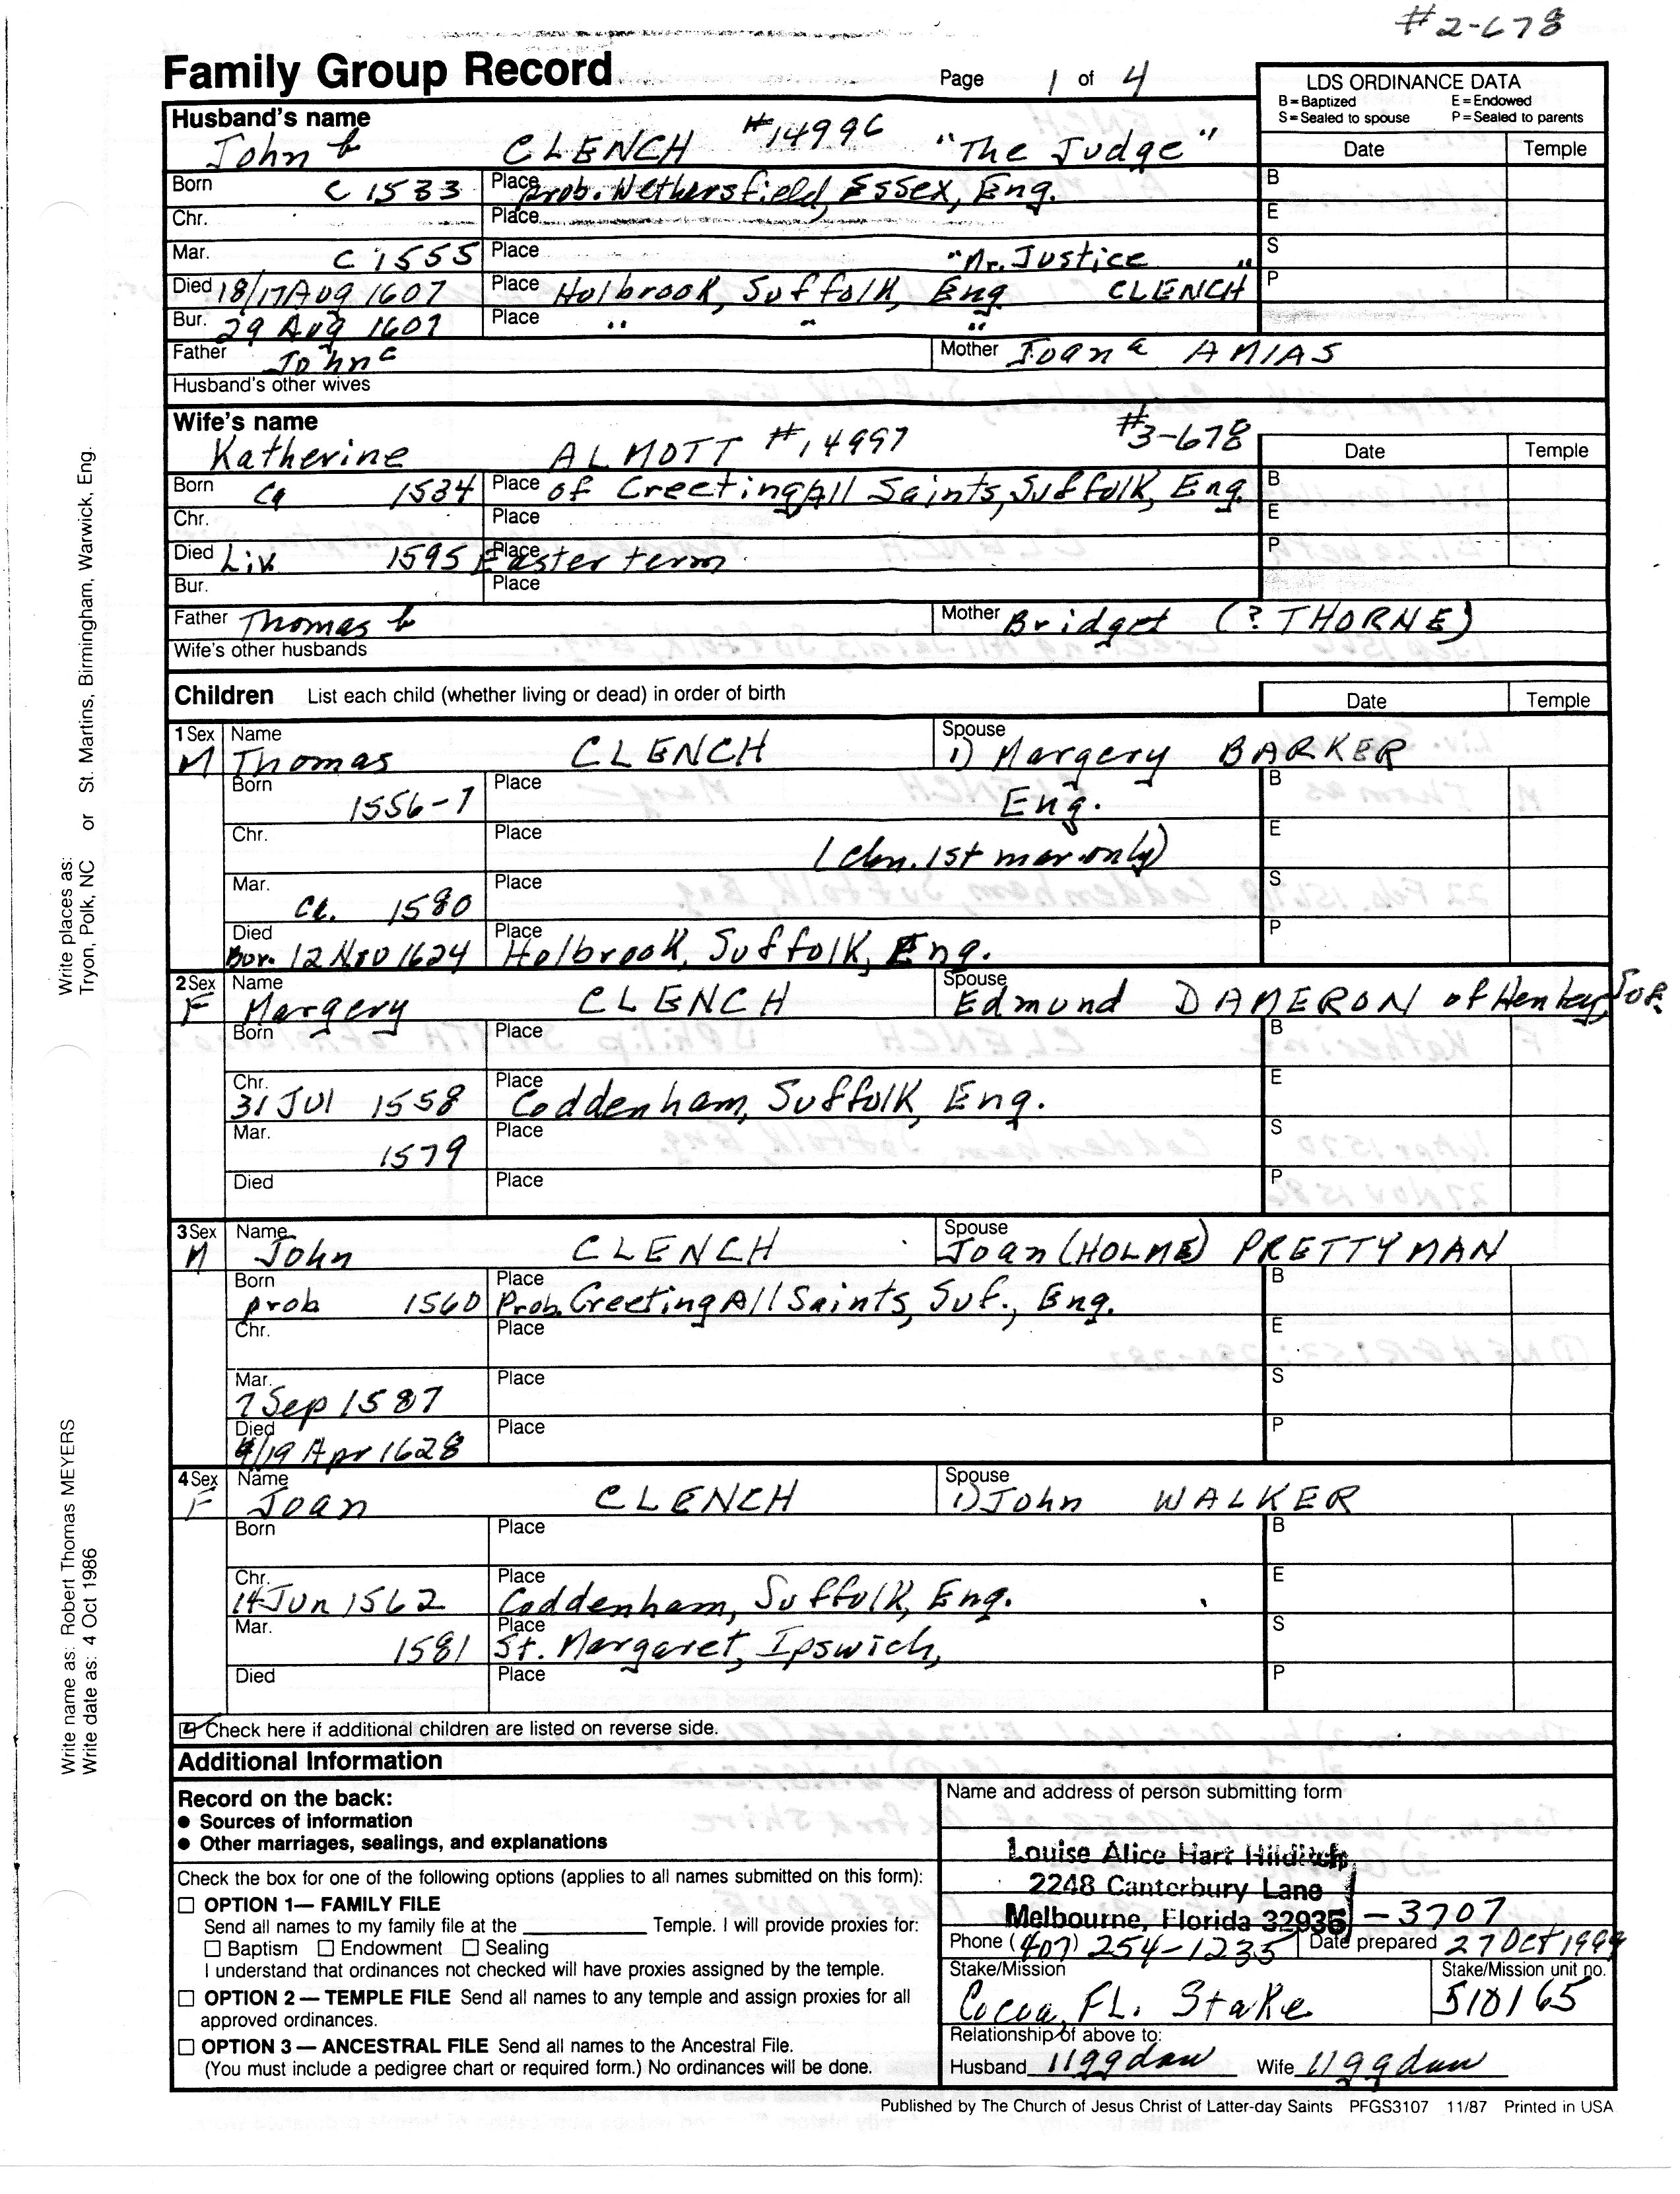 #2-678
Family Group Record
Page 1 of 4
LDS ORDINANCE DATA
B=Baptized E=Endowed
S=Sealed to spouse P=Sealed to parents
Husband's name
John b CLENCH #14996 "The Judge"
Date Temple
Born C 1533 Place prob. Nethersfield, Essex, Eng. B
Chr. Place E
Mar. C 1555 Place "Mr. Justice S
Died 18/17 Aug 1607 Place Holbrook, Suffolk, Eng CLENCH" P
Bur. 29 Aug 1607 Place " " "
Father John c Mother Joan a AMIAS
Husband's other wives
Wife's name
Katherine ALMOTT #14997 #3-678
Date Temple
Born Ca 1534 Place of Creeting All Saints, Suffolk, Eng. B
Chr. Place E
Died Liv. 1595 Place Easter term P
Bur. Place
Father Thomas b Mother Bridget (? THORNE)
Wife's other husbands
Children List each child (whether living or dead) in order of birth Date Temple
1 Sex Name Spouse
M Thomas CLENCH 1) Margery BARKER
Born 1556-7 Place Eng. B
Chr. Place (chn. 1st mar. only) E
Mar. Ca. 1580 Place S
Died Bur. 12 Nov 1624 Place Holbrook, Suffolk, Eng. P
2 Sex Name Spouse
F Margery CLENCH Edmund DAMERON of Henley, Suf.
Born Place B
Chr. 31 Jul 1558 Place Coddenham, Suffolk, Eng. E
Mar. 1579 Place S
Died Place P
3 Sex Name Spouse
M John CLENCH Joan (HOLME) PRETTYMAN
Born prob 1560 Place Prob. Creeting All Saints, Suf., Eng. B
Chr. Place E
Mar. 7 Sep 1587 Place S
Died 4/19 Apr 1628 Place P
4 Sex Name Spouse
F Joan CLENCH 1) John WALKER
Born Place B
Chr. 14 Jun 1562 Place Coddenham, Suffolk, Eng. E
Mar. 1581 Place St. Margaret, Ipswich, S
Died Place P
Check here if additional children are listed on reverse side.
Additional Information
Record on the back:
● Sources of information
● Other marriages, sealings, and explanations
Check the box for one of the following options (applies to all names submitted on this form):
☐ OPTION 1— FAMILY FILE
Send all names to my family file at the ____ Temple. I will provide proxies for:
☐ Baptism ☐ Endowment ☐ Sealing
I understand that ordinances not checked will have proxies assigned by the temple.
☐ OPTION 2 — TEMPLE FILE Send all names to any temple and assign proxies for all
approved ordinances.
☐ OPTION 3 — ANCESTRAL FILE Send all names to the Ancestral File.
(You must include a pedigree chart or required form.) No ordinances will be done.
Name and address of person submitting form
Louise Alice Hart Hilditch
2248 Canterbury Lane
Melbourne, Florida 32935 -3707
Phone (407) 254-1235 Date prepared 27 Oct 1999
Stake/Mission Stake/Mission unit no.
Cocoa, FL. Stake 510165
Relationship of above to:
Husband 11ggdau Wife 11ggdau
Published by The Church of Jesus Christ of Latter-day Saints PFGS3107 11/87 Printed in USA
Write places as: St. Martins, Birmingham, Warwick, Eng.
Tryon, Polk, NC or
Write name as: Robert Thomas MEYERS
Write date as: 4 Oct 1986